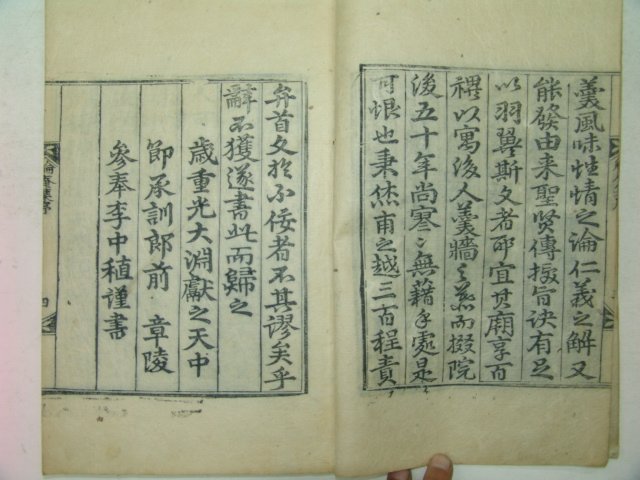 義風味性情之論仁義之解又
能發由来聖賢傳授旨訣有足
以羽翼斯文者耶宜其廟享百
禩以寓後人羹墻之慕而掇院
後五十年尚寥〻無藉手處是
可恨也秉然甫之越三百程責
弁首文於不佞者不其謬矣乎
辭不獲遂書此而歸之
歲重光大淵獻之天中
節承訓郎前 章陵
參奉李中稙謹書
齋集序
四